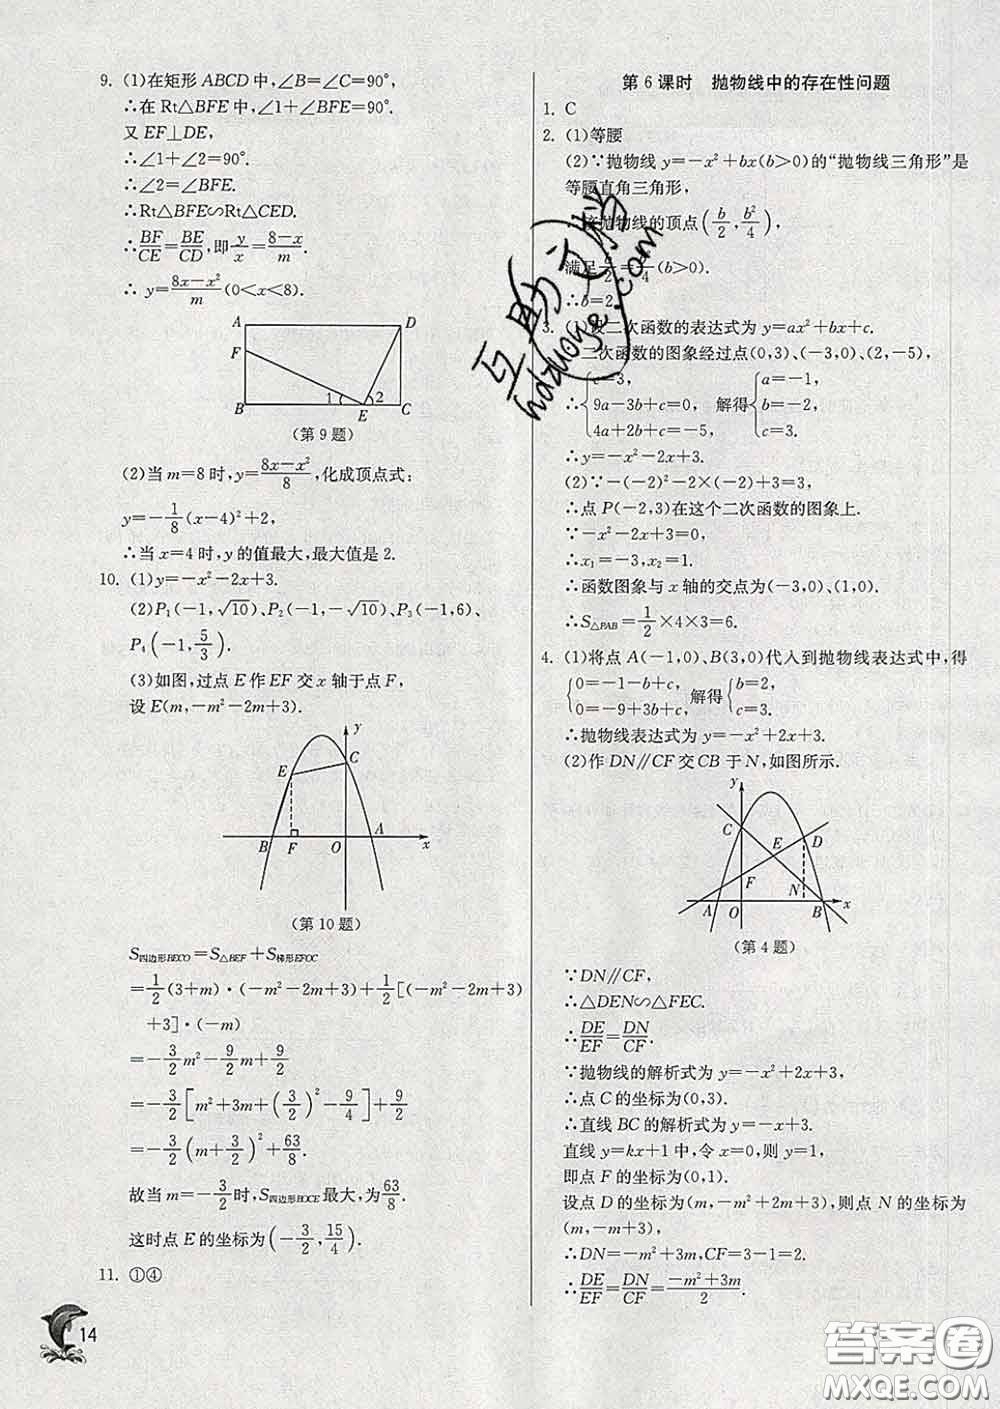 9. (1)在矩形 ABCD 中,∠B=∠C=90°,
∴在 Rt△BFE 中,∠1+∠BFE=90°.
又 EF⊥DE,
∴∠1+∠2=90°.
∴∠2=∠BFE.
∴Rt△BFE∽Rt△CED.
∴BF/CE=BE/CD,即y/x=(8-x)/m.
∴ y=(8x-x²)/m(0<x<8).
A D
F
B 1 2 E C
(第 9 题)
(2)当 m=8 时,y=(8x-x²)/8,化成顶点式:
y=-1/8(x-4)²+2,
∴当 x=4 时,y 的值最大,最大值是 2.
10. (1)y=-x²-2x+3.
(2)P₁(-1,√10)、P₂(-1,-√10)、P₃(-1,6)、
P₄(-1,5/3).
(3)如图,过点 E 作 EF 交 x 轴于点 F,
设 E(m,-m²-2m+3).
y
E C
B F O A x
(第 10 题)
S四边形BECO=S△BEF+S梯形EFOC
=1/2(3+m)·(-m²-2m+3)+1/2[(-m²-2m+3)
+3]·(-m)
=-3/2m²-9/2m+9/2
=-3/2[m²+3m+(3/2)²-9/4]+9/2
=-3/2(m+3/2)²+63/8.
故当 m=-3/2时,S四边形BOCE最大,为63/8.
这时点 E 的坐标为(-3/2,15/4).
11. ①④
14
第 6 课时 抛物线中的存在性问题
1. C
2. (1)等腰
(2)∵抛物线 y=-x²+bx(b>0)的“抛物线三角形”是
等腰直角三角形,
抛物线的顶点(b/2,b²/4),
满足 (b>0).
∴b=2.
3. (1)设二次函数的表达式为 y=ax²+bx+c.
二次函数的图象经过点(0,3)、(-3,0)、(2,-5),
∴{c=3, 9a-3b+c=0, 4a+2b+c=-5, 解得{a=-1, b=-2, c=3.
∴y=-x²-2x+3.
(2)∵-(-2)²-2×(-2)+3=3,
∴点 P(-2,3)在这个二次函数的图象上.
∵-x²-2x+3=0,
∴x₁=-3,x₂=1.
∴函数图象与 x 轴的交点为(-3,0)、(1,0).
∴S△PAB=1/2×4×3=6.
4. (1)将点 A(-1,0)、B(3,0)代入到抛物线表达式中,得
{0=-1-b+c, 0=-9+3b+c, 解得{b=2, c=3.
∴抛物线表达式为 y=-x²+2x+3.
(2)作 DN∥CF 交 CB 于 N,如图所示.
y
C D
E
F N
A O B x
(第 4 题)
∵DN∥CF,
∴△DEN∽△FEC.
∴DE/EF=DN/CF.
∵抛物线的解析式为 y=-x²+2x+3,
∴点 C 的坐标为(0,3).
∴直线 BC 的解析式为 y=-x+3.
直线 y=kx+1 中,令 x=0,则 y=1,
即点 F 的坐标为(0,1).
设点 D 的坐标为(m,-m²+2m+3),则点 N 的坐标为
(m,-m+3),
∴DN=-m²+3m,CF=3-1=2.
∴DE/EF=DN/CF=(-m²+3m)/2.
互助文档
hdzuoye.com
答案圈
MXQE.COM